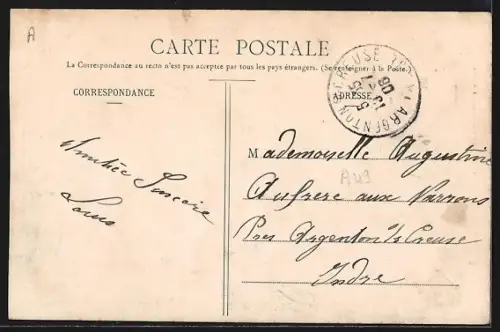 A
CARTE POSTALE
La Correspondance au recto n'est pas acceptée par tous les pays étrangers. (Se renseigner à la Poste.)
CORRESPONDANCE
ADRESSE
ARGENTON S CREUSE
5 15
06
Amitié Sincère
Louis
Mademoiselle Augustine
A49
Aufrere aux Varrons
Pres Argenton s/s Creuse
Indre